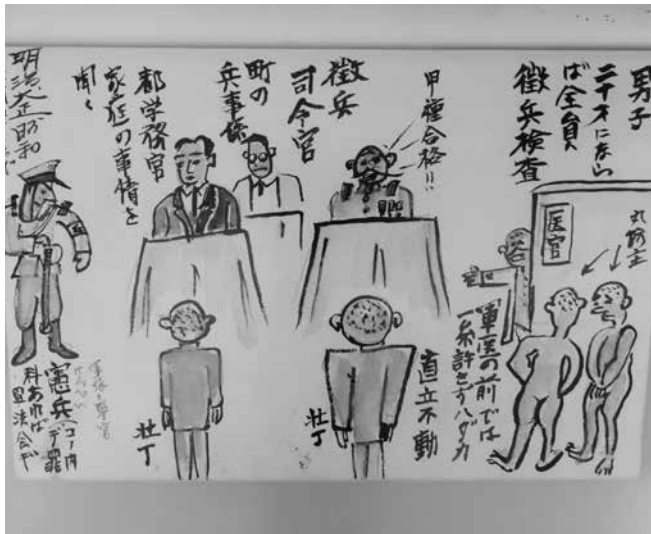 男子
二十才になら
ば全員
徴兵検査
医官
丸坊主
「軍医の前では
一糸許さずハダカ
甲種合格!!
徴兵
司令官
直立不動
壮丁
町の
兵事係
都学務官
家庭の事情を
聞く
壮丁
明治大正昭和
憲兵
科あれば